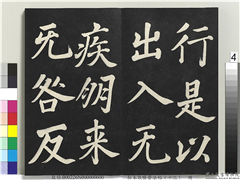 行是以
出入无
疾朋来
无咎反
4